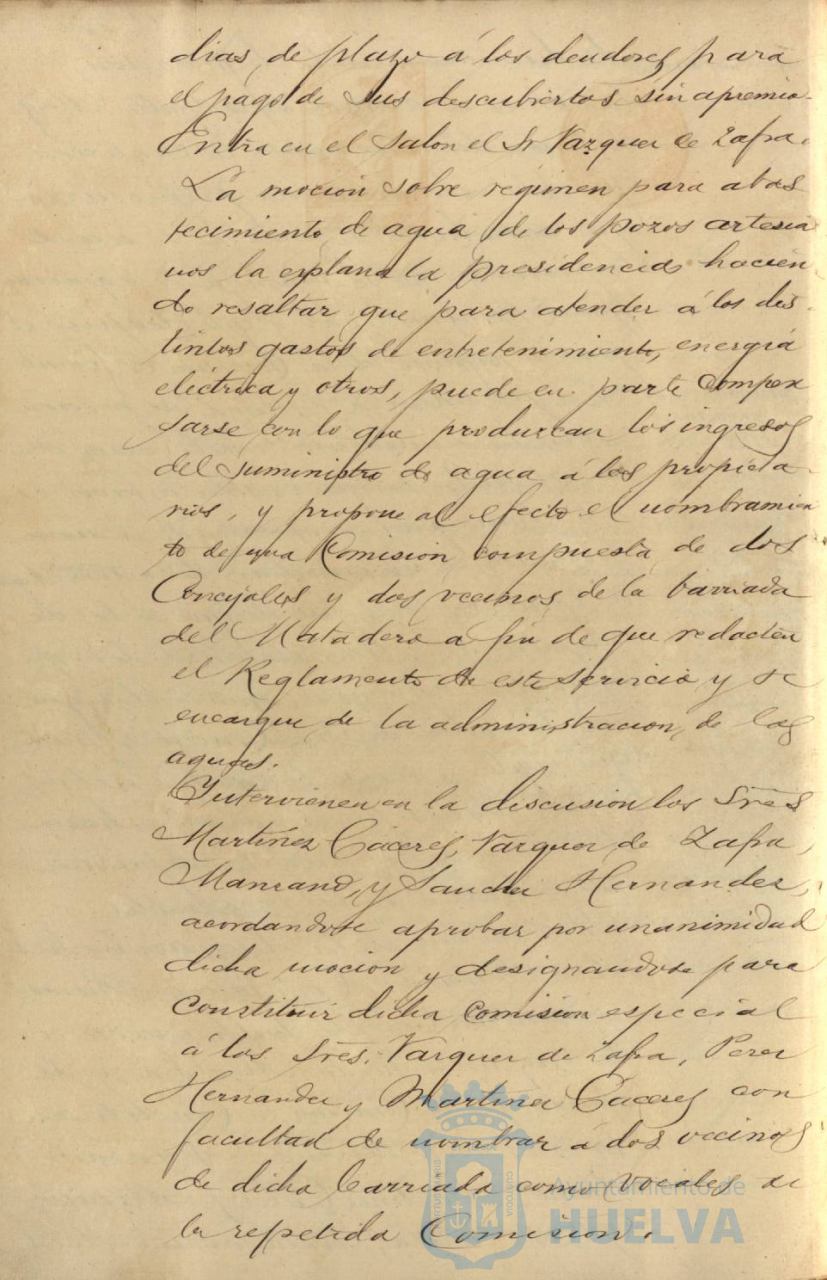 dias de plazo á los deudores para
el pago de sus descubiertos sin apremio.
Entra en el salon el Sr Vazquez de Zafra.
La moción sobre regimen para abas
tecimiento de agua de los pozos artesia
nos la explana la presidencia hacien
do resaltar que para atender á los dis-
tintos gastos de entretenimiento, energía
eléctrica y otros, puede en parte compen
sarse con lo que produzcan los ingresos
del suministro de agua á los propieta-
rios, y propone al efecto el nombramien
to de una Comisión compuesta de dos
Concejales y dos vecinos de la barriada
del Matadero a fin de que redacten
el Reglamento de este servicio y se
encargue de la administracion de las
aguas.
Intervienen en la discusion los Sres
Martinez Cáceres, Vazquez de Zafra,
Manzano, y Sanchez Hernandez,
acordandose aprobar por unanimidad
dicha mocion y designandose para
constituir dicha Comision especial
á los Sres. Vazquez de Zafra, Perez
Hernandez y Martinez Cáceres con
facultad de nombrar á dos vecinos
de dicha barriada como vocales de
la repetida Comision.
Ayuntamiento de
HUELVA